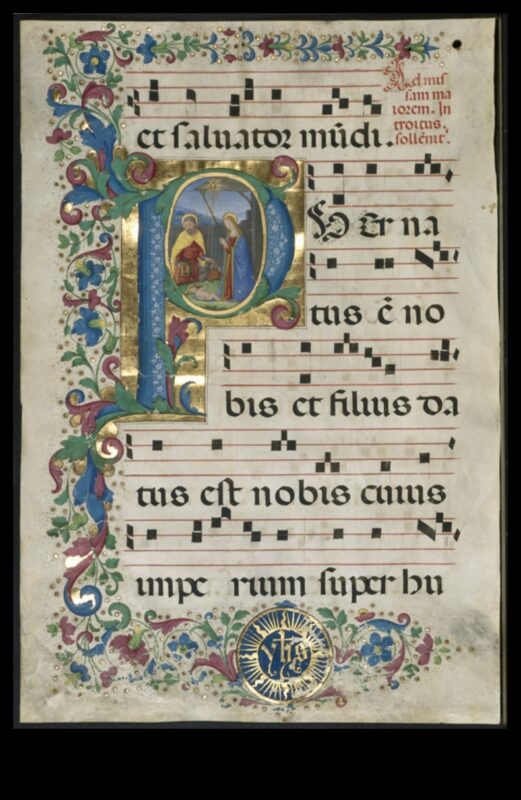 et saluator mũdi.
Ad mis
sam ma
iorem. In
troitus.
sollẽnit̃.
PU Er na
tus ẽ no
bis et filius da
tus est nobis cuius
impe rium super hu
yhs